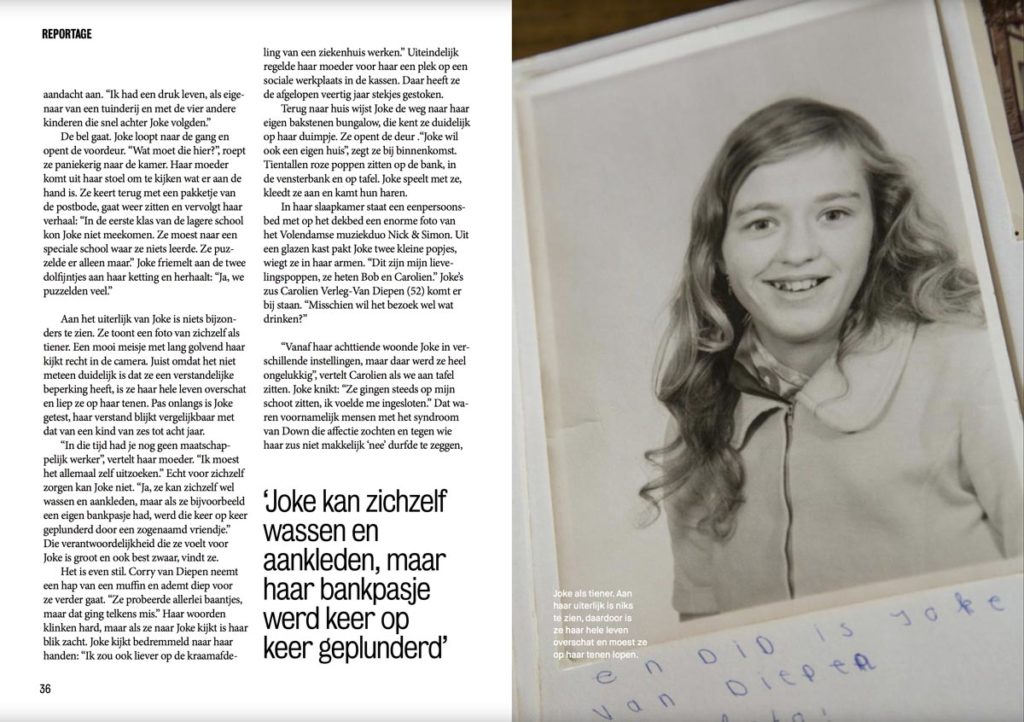 REPORTAGE
aandacht aan. “Ik had een druk leven, als eige-
naar van een tuinderij en met de vier andere
kinderen die snel achter Joke volgden.”
De bel gaat. Joke loopt naar de gang en
opent de voordeur. “Wat moet die hier?”, roept
ze paniekerig naar de kamer. Haar moeder
komt uit haar stoel om te kijken wat er aan de
hand is. Ze keert terug met een pakketje van
de postbode, gaat weer zitten en vervolgt haar
verhaal: “In de eerste klas van de lagere school
kon Joke niet meekomen. Ze moest naar een
speciale school waar ze niets leerde. Ze puz-
zelde er alleen maar.” Joke friemelt aan de twee
dolfijntjes aan haar ketting en herhaalt: “Ja, we
puzzelden veel.”
Aan het uiterlijk van Joke is niets bijzon-
ders te zien. Ze toont een foto van zichzelf als
tiener. Een mooi meisje met lang golvend haar
kijkt recht in de camera. Juist omdat het niet
meteen duidelijk is dat ze een verstandelijke
beperking heeft, is ze haar hele leven overschat
en liep ze op haar tenen. Pas onlangs is Joke
getest, haar verstand blijkt vergelijkbaar met
dat van een kind van zes tot acht jaar.
“In die tijd had je nog geen maatschap-
pelijk werker”, vertelt haar moeder. “Ik moest
het allemaal zelf uitzoeken.” Echt voor zichzelf
zorgen kan Joke niet. “Ja, ze kan zichzelf wel
wassen en aankleden, maar als ze bijvoorbeeld
een eigen bankpasje had, werd die keer op keer
geplunderd door een zogenaamd vriendje.”
Die verantwoordelijkheid die ze voelt voor
Joke is groot en ook best zwaar, vindt ze.
Het is even stil. Corry van Diepen neemt
een hap van een muffin en ademt diep voor
ze verder gaat. “Ze probeerde allerlei baantjes,
maar dat ging telkens mis.” Haar woorden
klinken hard, maar als ze naar Joke kijkt is haar
blik zacht. Joke kijkt bedremmeld naar haar
handen: “Ik zou ook liever op de kraamafde-
36
ling van een ziekenhuis werken.” Uiteindelijk
regelde haar moeder voor haar een plek op een
sociale werkplaats in de kassen. Daar heeft ze
de afgelopen veertig jaar stekjes gestoken.
Terug naar huis wijst Joke de weg naar haar
eigen bakstenen bungalow, die kent ze duidelijk
op haar duimpje. Ze opent de deur .“Joke wil
ook een eigen huis”, zegt ze bij binnenkomst.
Tientallen roze poppen zitten op de bank, in
de vensterbank en op tafel. Joke speelt met ze,
kleedt ze aan en kamt hun haren.
In haar slaapkamer staat een eenpersoons-
bed met op het dekbed een enorme foto van
het Volendamse muziekduo Nick & Simon. Uit
een glazen kast pakt Joke twee kleine popjes,
wiegt ze in haar armen. “Dit zijn mijn lieve-
lingspoppen, ze heten Bob en Carolien.” Joke’s
zus Carolien Verleg-Van Diepen (52) komt er
bij staan. “Misschien wil het bezoek wel wat
drinken?”
“Vanaf haar achttiende woonde Joke in ver-
schillende instellingen, maar daar werd ze heel
ongelukkig”, vertelt Carolien als we aan tafel
zitten. Joke knikt: “Ze gingen steeds op mijn
schoot zitten, ik voelde me ingesloten.” Dat wa-
ren voornamelijk mensen met het syndroom
van Down die affectie zochten en tegen wie
haar zus niet makkelijk ‘nee’ durfde te zeggen,
‘Joke kan zichzelf
wassen en
aankleden, maar
haar bankpasje
werd keer op
keer geplunderd’
Joke als tiener. Aan
haar uiterlijk is niks
te zien, daardoor is
ze haar hele leven
overschat en moest ze
op haar tenen lopen.
en DiD is Joke
van Diepen